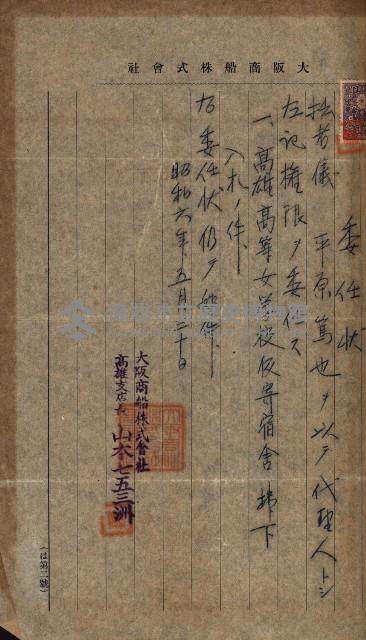 大阪商船株式會社
委任状
拙者儀 平原篤也ヲ以テ代理人トシ
左記権限ヲ委任ス
一、高雄高等女学校仮寄宿舎拂下
入札ノ件
右委任状仍テ如件
昭和六年五月三十日
大阪商船株式會社
高雄支店長 山本七五三洲
(は第二號)